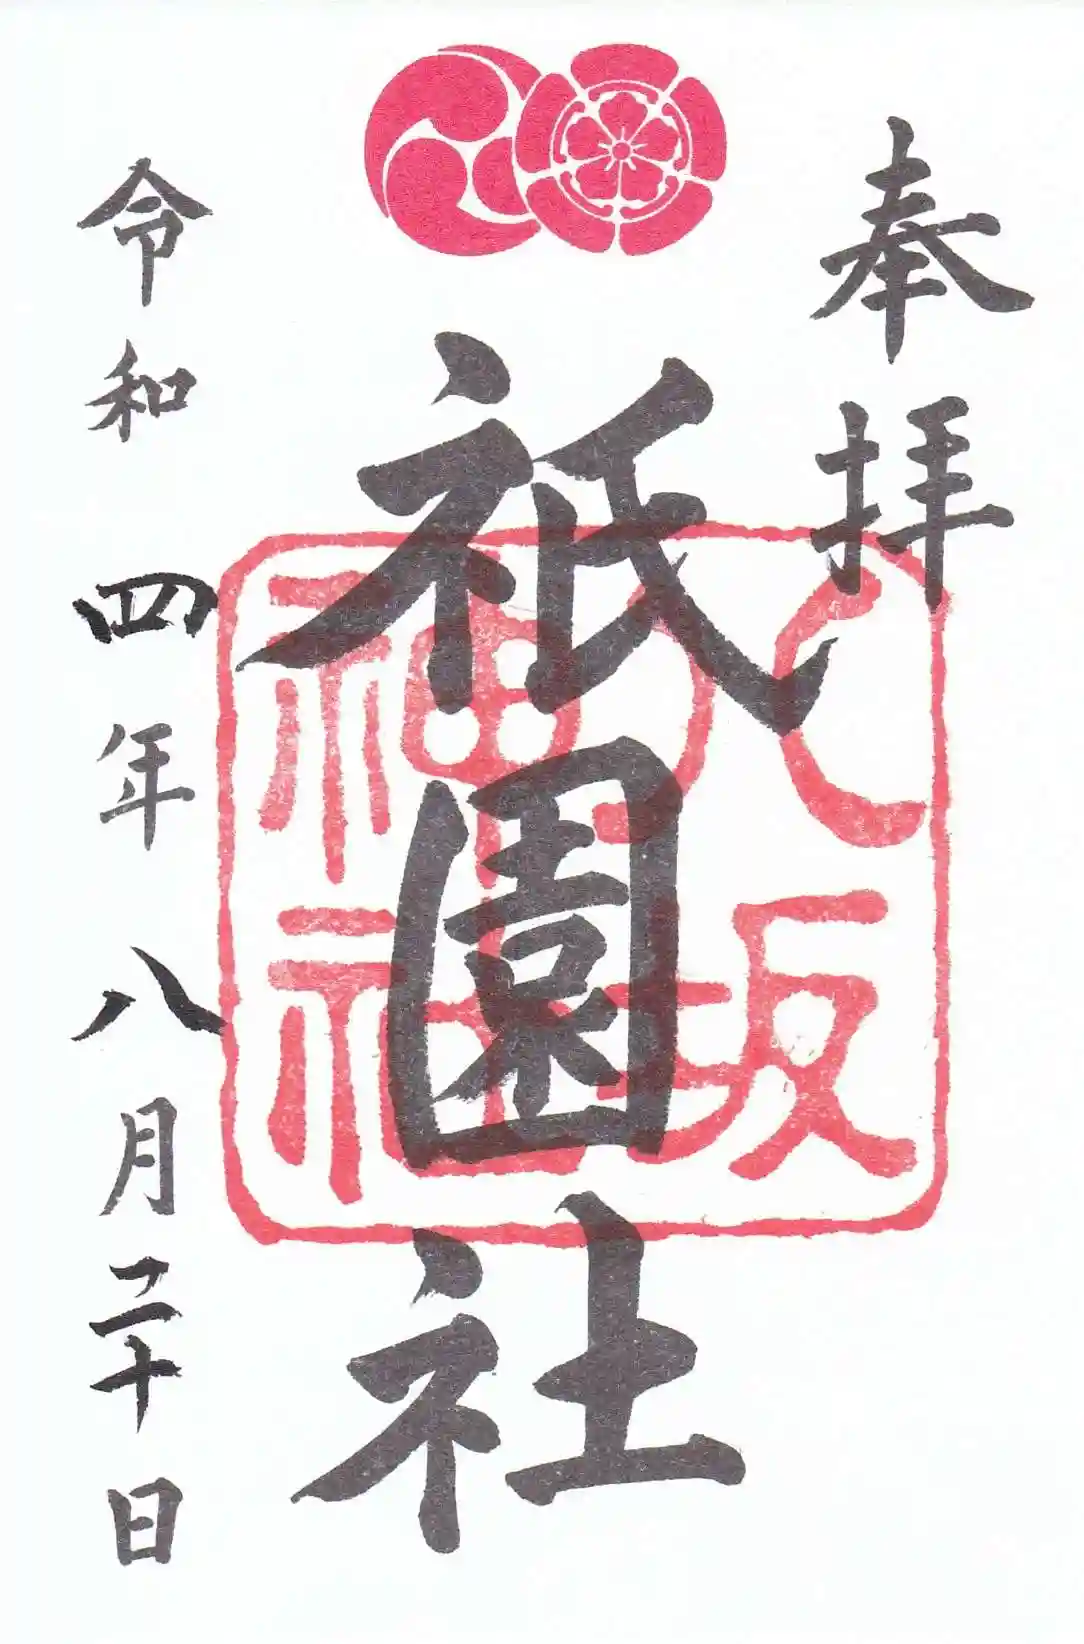 奉拝
祇園社
八坂
神社
令和四年八月二十日